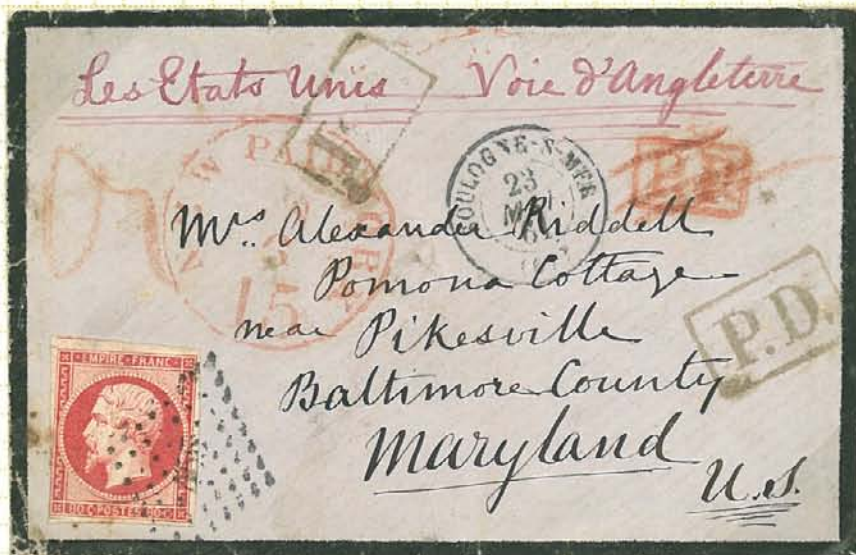 Les Etats Unis Voie d'Angleterre
NEW PAID YORK
15
BOULOGNE-S-MER
23
MAI
P.D.
Mrs. Alexander Riddell
Pomona Cottage
near Pikesville
Baltimore County
Maryland
U.S.
P.D.
EMPIRE-FRANC
80 C POSTES 80 C